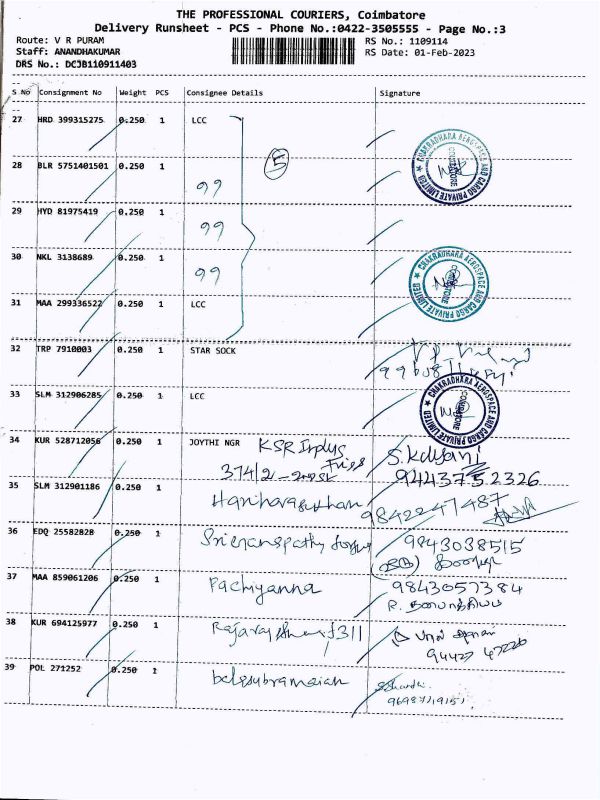 THE PROFESSIONAL COURIERS, Coimbatore
Delivery Runsheet - PCS - Phone No.:0422-3505555 - Page No.:3
Route: V R PURAM RS No.: 1109114
Staff: ANANDHAKUMAR RS Date: 01-Feb-2023
DRS No.: DCJB110911403
S No Consignment No Weight PCS Consignee Details Signature
27 HRD 399315275 0.250 1 LCC
CHAKRADHARA AEROSPACE AND CARGO PRIVATE LIMITED ★ COIMBATORE
5
28 BLR 5751401501 0.250 1
99
29 HYD 81975419 0.250 1
99
30 NKL 3138689 0.250 1
99
CHAKRADHARA AEROSPACE AND CARGO PRIVATE LIMITED ★ COIMBATORE
31 MAA 299336522 0.250 1 LCC
32 TRP 7910003 0.250 1 STAR SOCK
33 SLM 312906285 0.250 1 LCC
CHAKRADHARA AEROSPACE AND CARGO PRIVATE LIMITED ★ COIMBATORE
34 KUR 528712056 0.250 1 JOYTHI NGR KSR S.Kalyani
374/2 9443752326
35 SLM 312901186 0.250 1 9842247487
36 EDQ 25582828 0.250 1 9843038515
37 MAA 859061206 0.250 1 Pachiyanna 9843057384
38 KUR 694125977 0.250 1
94427 47226
39 POL 271252 0.250 1 balasubramaian